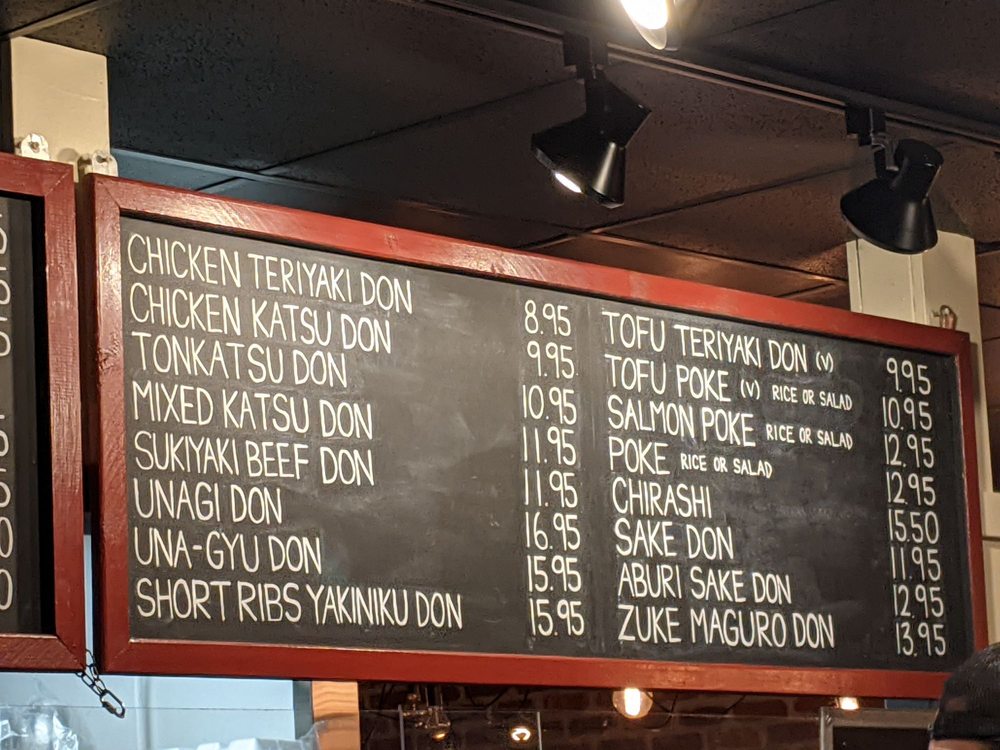 CHICKEN TERIYAKI DON 8.95
CHICKEN KATSU DON 9.95
TONKATSU DON 10.95
MIXED KATSU DON 11.95
SUKIYAKI BEEF DON 11.95
UNAGI DON 16.95
UNA-GYU DON 15.95
SHORT RIBS YAKINIKU DON 15.95
TOFU TERIYAKI DON (V) 9.95
TOFU POKE (V) RICE OR SALAD 10.95
SALMON POKE RICE OR SALAD 12.95
POKE RICE OR SALAD 12.95
CHIRASHI 15.50
SAKE DON 11.95
ABURI SAKE DON 12.95
ZUKE MAGURO DON 13.95